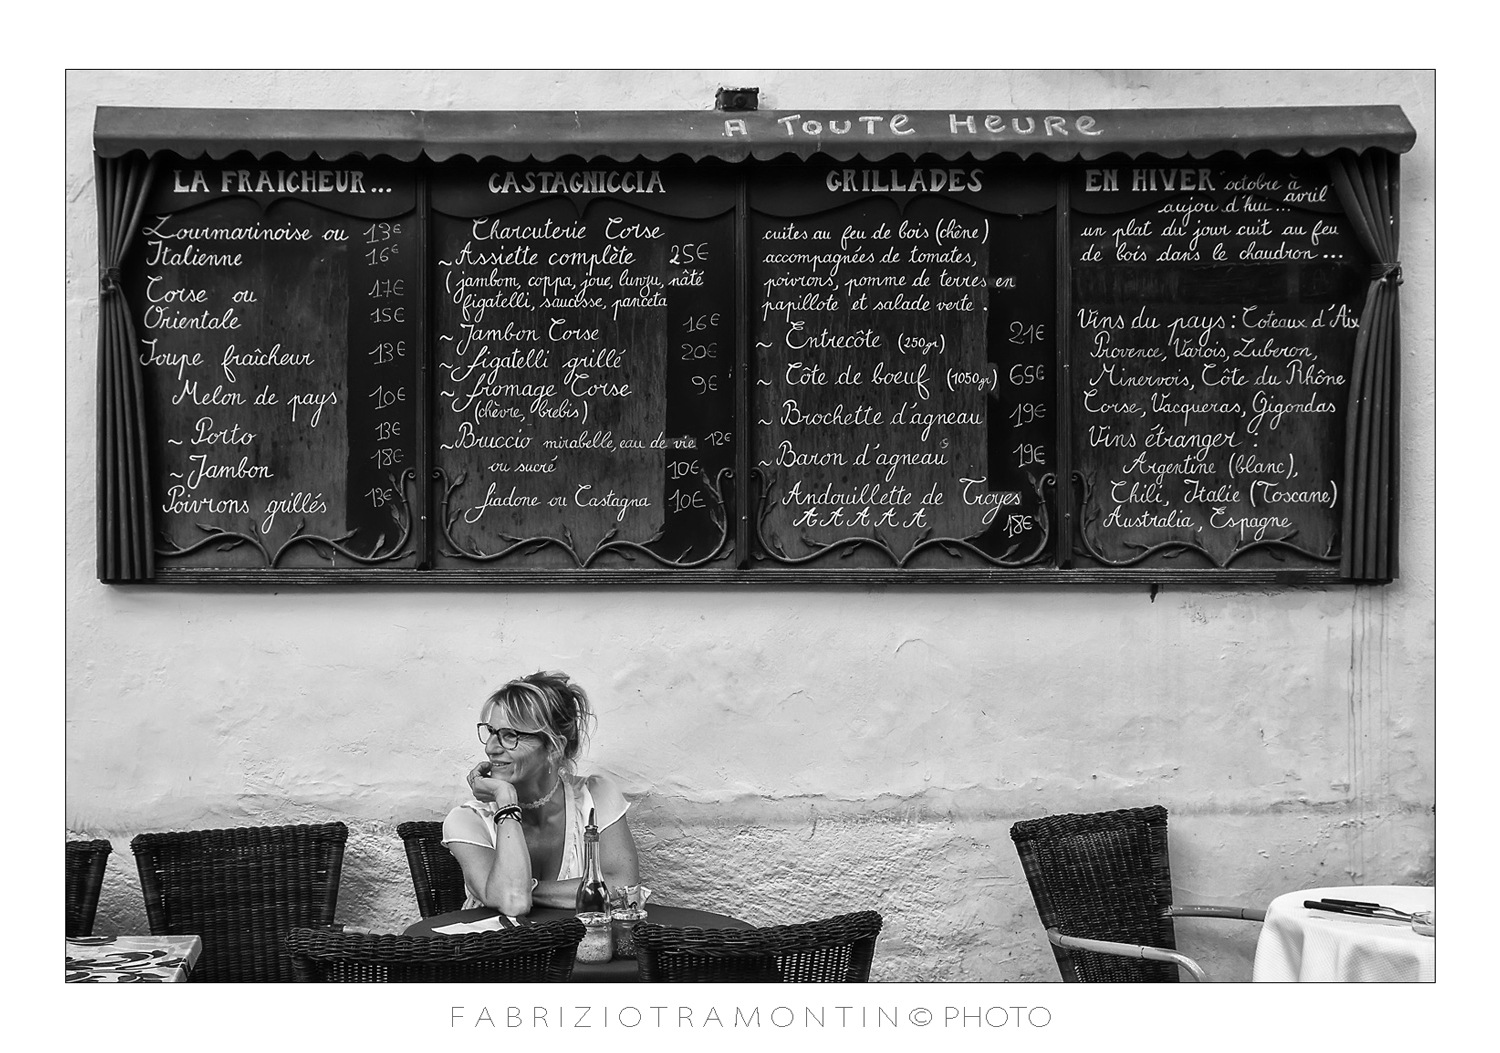 A TOUTE HEURE
LA FRAICHEUR...
Lourmarinoise ou 13€
Italienne 16€
Corse ou 17€
Orientale 15€
Soupe fraîcheur 13€
Melon de pays 10€
~ Porto 13€
~ Jambon 18€
Poivrons grillés 13€
CASTAGNICCIA
Charcuterie Corse
~ Assiette complète 25€
(jambom, coppa, joue, lunzu, pâté
figatelli, saucisse, panceta
~ Jambon Corse 16€
~ figatelli grillé 20€
~ fromage Corse 9€
(chèvre, brebis)
~ Bruccio mirabelle, eau de vie 12€
ou sucré 10€
fiadone ou Castagna 10€
GRILLADES
cuites au feu de bois (chêne)
accompagnées de tomates,
poivrons, pomme de terres en
papillote et salade verte.
~ Entrecôte (250gr) 21€
~ Côte de boeuf (1050gr) 65€
~ Brochette d'agneau 19€
~ Baron d'agneau 19€
Andouillette de Troyes
A A A A A 18€
EN HIVER octobre à
avril
aujou d'hui...
un plat du jour cuit au feu
de bois dans le chaudron...
Vins du pays: Coteaux d'Aix
Provence, Varois, Luberon,
Minervois, Côte du Rhône
Corse, Vacqueras, Gigondas
Vins étranger:
Argentine (blanc),
Chili, Italie (Toscane)
Australia, Espagne
FABRIZIOTRAMONTIN© PHOTO